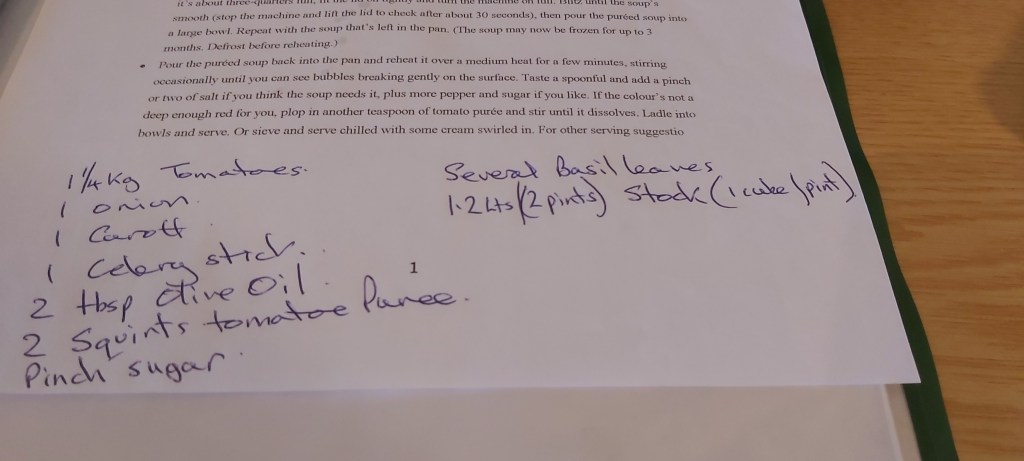 it's about three-quarters full, fit the lid on tightly and turn the machine on full. Blitz until the soup's
smooth (stop the machine and lift the lid to check after about 30 seconds), then pour the puréed soup into
a large bowl. Repeat with the soup that's left in the pan. (The soup may now be frozen for up to 3
months. Defrost before reheating.)
• Pour the puréed soup back into the pan and reheat it over a medium heat for a few minutes, stirring
occasionally until you can see bubbles breaking gently on the surface. Taste a spoonful and add a pinch
or two of salt if you think the soup needs it, plus more pepper and sugar if you like. If the colour's not a
deep enough red for you, plop in another teaspoon of tomato purée and stir until it dissolves. Ladle into
bowls and serve. Or sieve and serve chilled with some cream swirled in. For other serving suggestio
1 1/4 Kg Tomatoes.
1 onion.
1 Carott.
1 Celery stick.
2 tbsp Olive Oil.
2 Squirts tomatoe Puree.
Pinch sugar.
Several Basil leaves
1.2 Lts (2 pints) Stock (1 cube / pint)
1